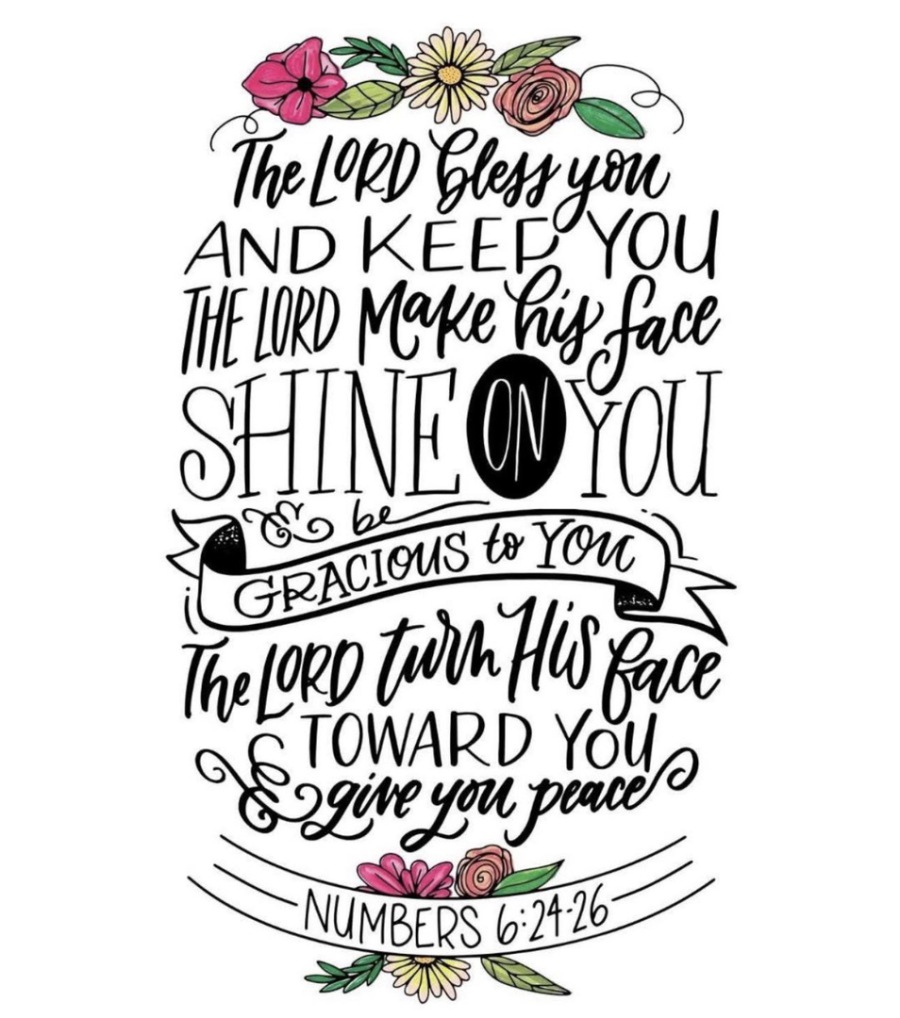 The LORD bless you
AND KEEP YOU
THE LORD Make his face
SHINE ON YOU
& be
GRACIOUS to YOU
The LORD turn His face
TOWARD YOU
& give you peace
NUMBERS 6:24-26